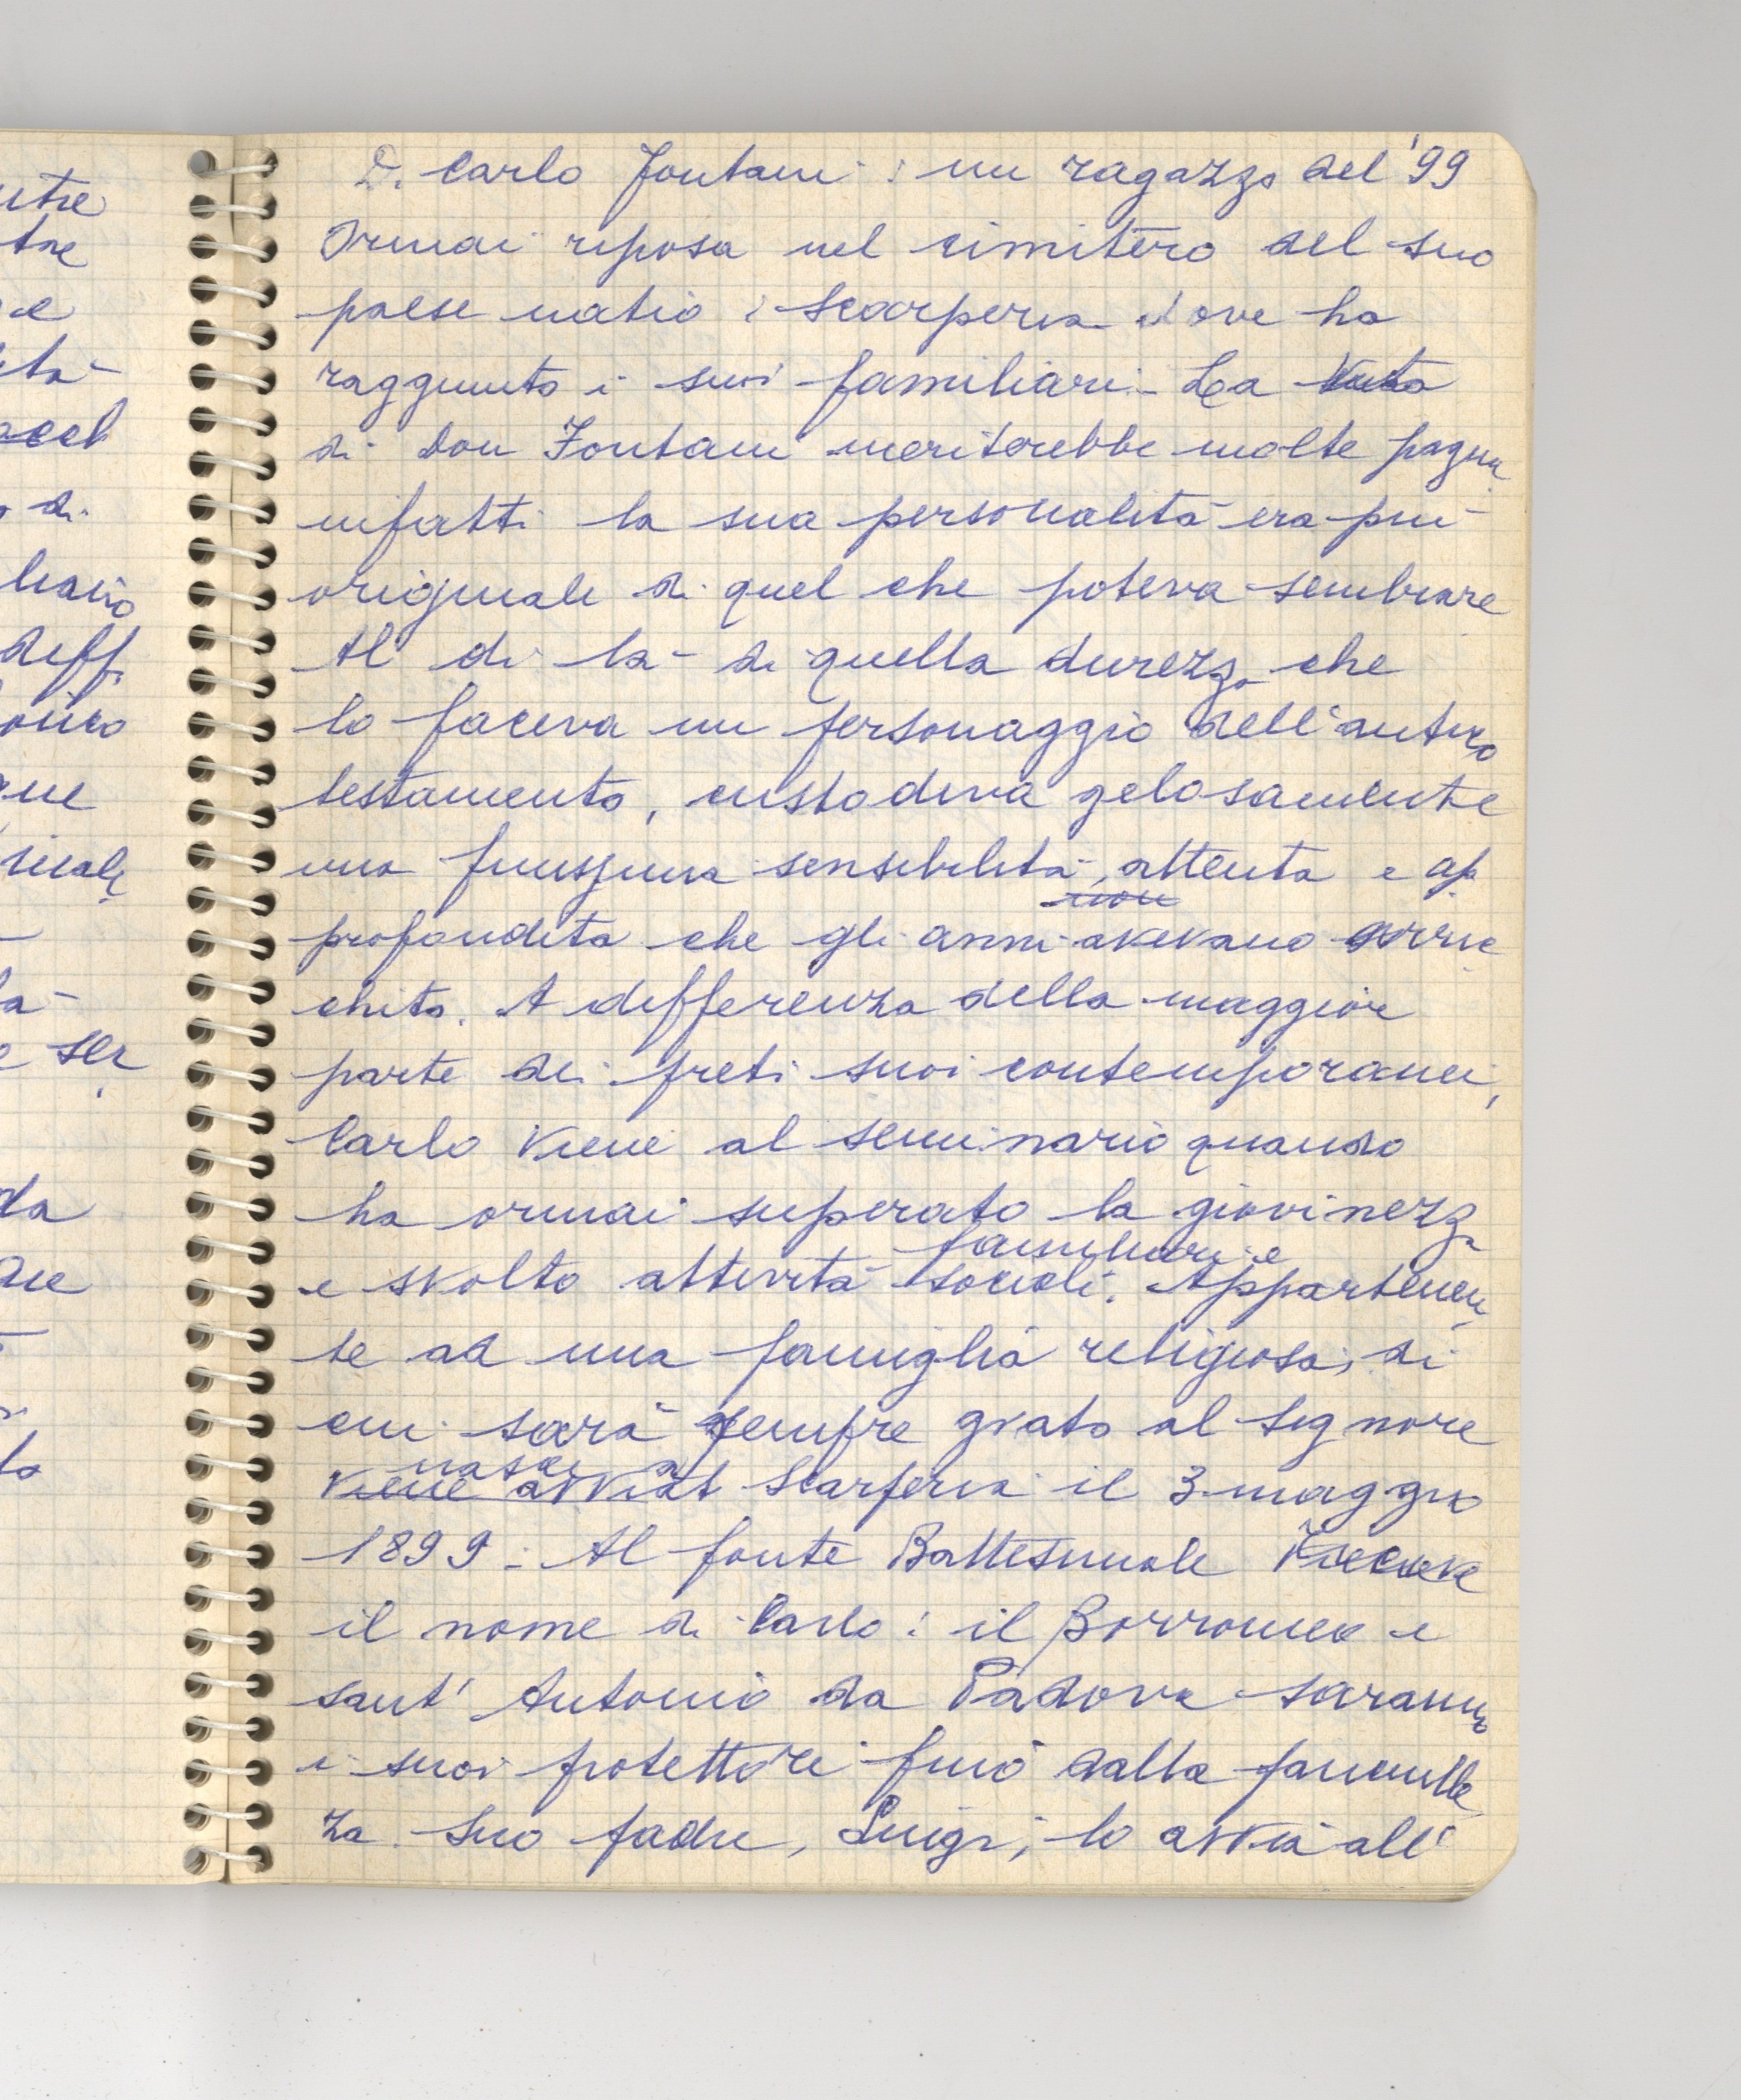 D. Carlo Fontani: un ragazzo del '99
Ormai riposa nel cimitero del suo
paese natio: Scarperia dove ha
raggiunto i suoi familiari. La vita
di Don Fontani meriterebbe molte pagine
infatti la sua personalità era più
originale di quel che poteva sembrare
Al di là di quella durezza che
lo faceva un personaggio dell'antico
testamento, custodiva gelosamente
una finissima sensibilità, attenta e ap
non
profondita che gli anni avevano arric
chito. A differenza della maggior
parte dei preti suoi contemporanei,
Carlo viene al seminario quando
ha ormai superato la giovinezza
familiari e
e svolto attività sociali. Appartenen
te ad una famiglia religiosa, di
cui sarà sempre grato al Signore
nasce a
viene avviat Scarperia il 3 maggio
1899. Al fonte Battesimale riceve
il nome di Carlo: il Borromeo e
sant'Antonio da Padova saranno
i suoi protettori fino dalla fanciulle
za. Suo padre, Luigi, lo avvia all'
utre
tre
di
ser
da